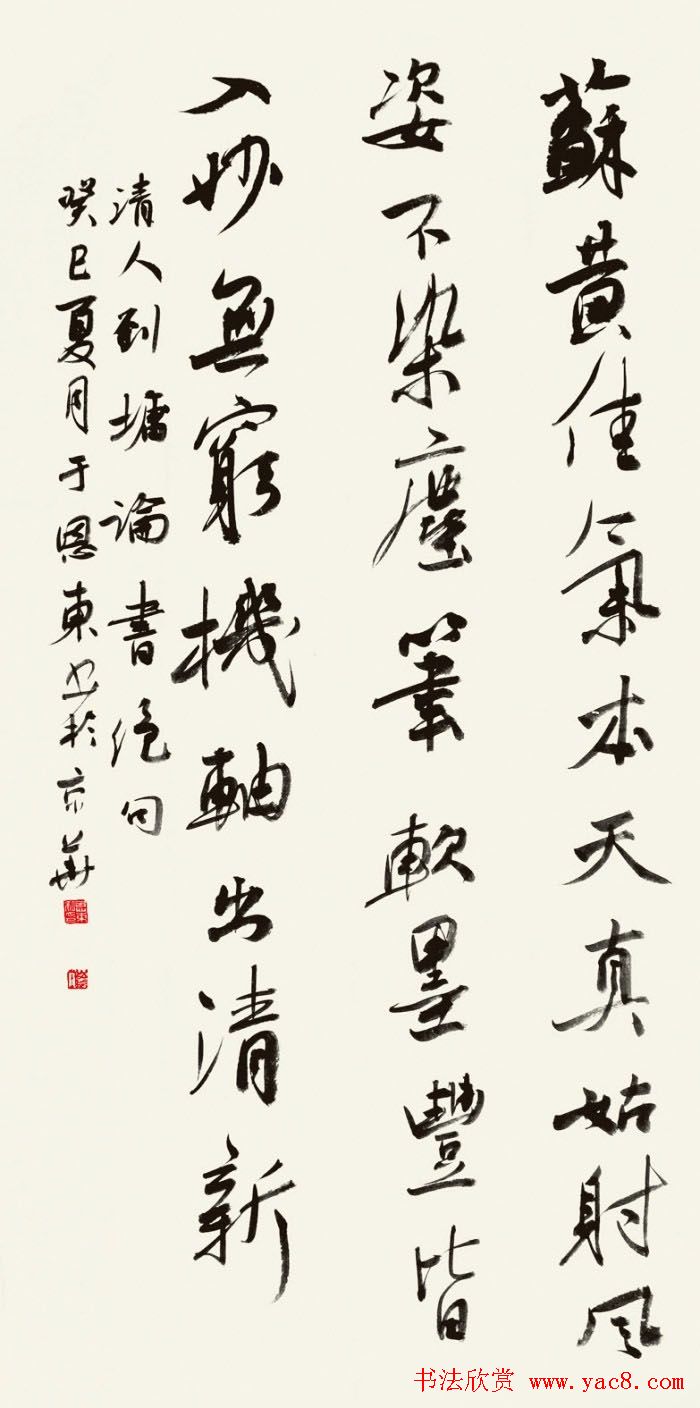 蘇黃佳氣本天真姑射風
姿不染塵筆軟墨豐皆
入妙無窮機軸出清新
清人劉墉論書絕句
癸巳夏月于恩東書於京華
书法欣赏 www.yac8.com